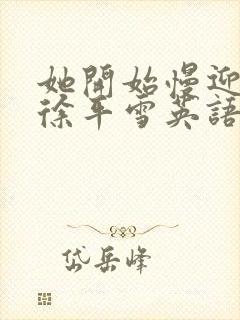 她開始慢迎
徐平雪英語
岱岳峰